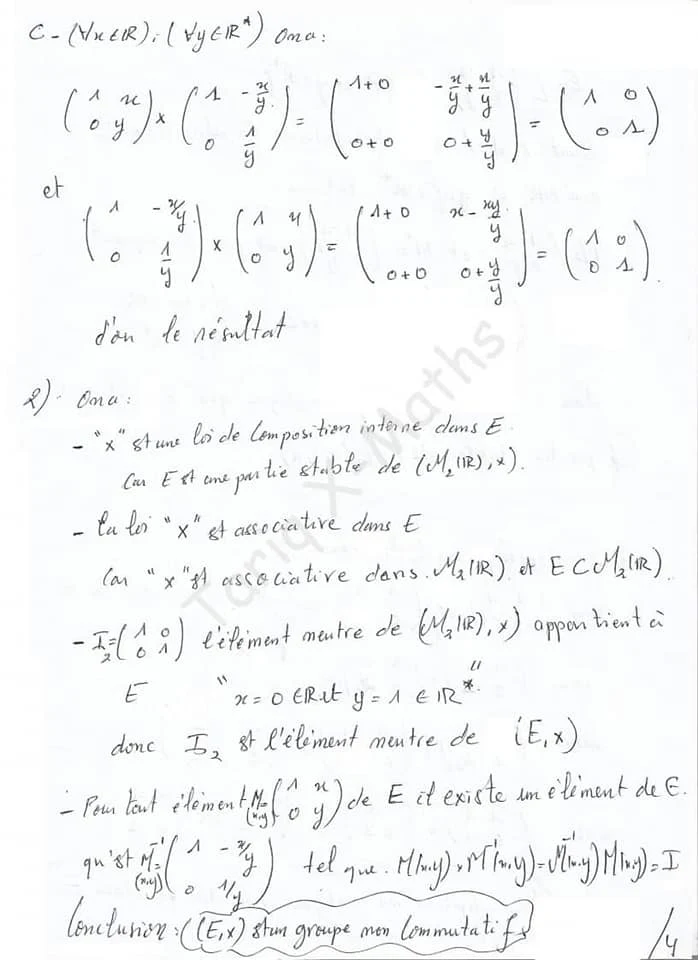 C - (∀x∈ℝ); (∀y∈ℝ*) Ona:
(1 x; 0 y) × (1 -x/y; 0 1/y) = (1+0 -x/y+x/y; 0+0 0+y/y) = (1 0; 0 1)
et
(1 -x/y; 0 1/y) × (1 x; 0 y) = (1+0 x-xy/y; 0+0 0+y/y) = (1 0; 0 1).
d'où le résultat
2)- Ona:
- "x" st une loi de Composition interne dans E.
Car E st une partie stable de (M₂(ℝ), ×).
- la loi "x" st associative dans E
Car "x" st associative dans M₂(ℝ) et E⊂M₂(ℝ)
- I₂=(1 0; 0 1) l'élément neutre de (M₂(ℝ), ×) appartient à
E "x = 0 ∈ℝ et y = 1 ∈ℝ*"
donc I₂ st l'élément neutre de (E, ×)
- Pour tout élément M(x,y)=(1 x; 0 y) de E il existe un élément de E.
qu'st M⁻¹(x,y)=(1 -x/y; 0 1/y) tel que. M(x,y)×M⁻¹(x,y)=M⁻¹(x,y)M(x,y)=I
Conclusion: ((E,×) st un groupe non Commutatif
/4
Tariq X-Maths